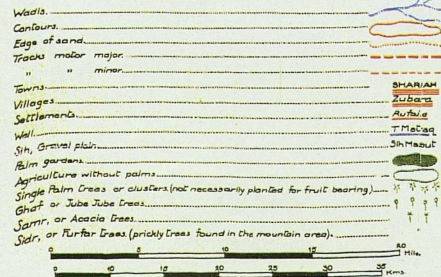 Wadis.
Contours.
Edge of sand.
Tracks motor major.
" " minor.
Towns. SHARIAH
Villages. Zubara
Settlements. Rufaia
Well. T Metraq
Sih, Gravel plain. Sih Mabut
Palm gardens.
Agriculture without palms.
Single Palm trees or clusters. (not necessarily planted for fruit bearing)
Ghaf or Jube Jube trees.
Samr, or Acacia trees.
Sidr, or Furfar trees. (prickly trees found in the mountain area).
0 5 10 15 20 Mile.
0 5 10 15 20 25 30 35 Kms.